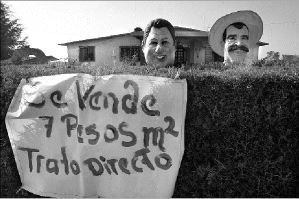 Se Vende
7 Pesos m²
Trato Directo